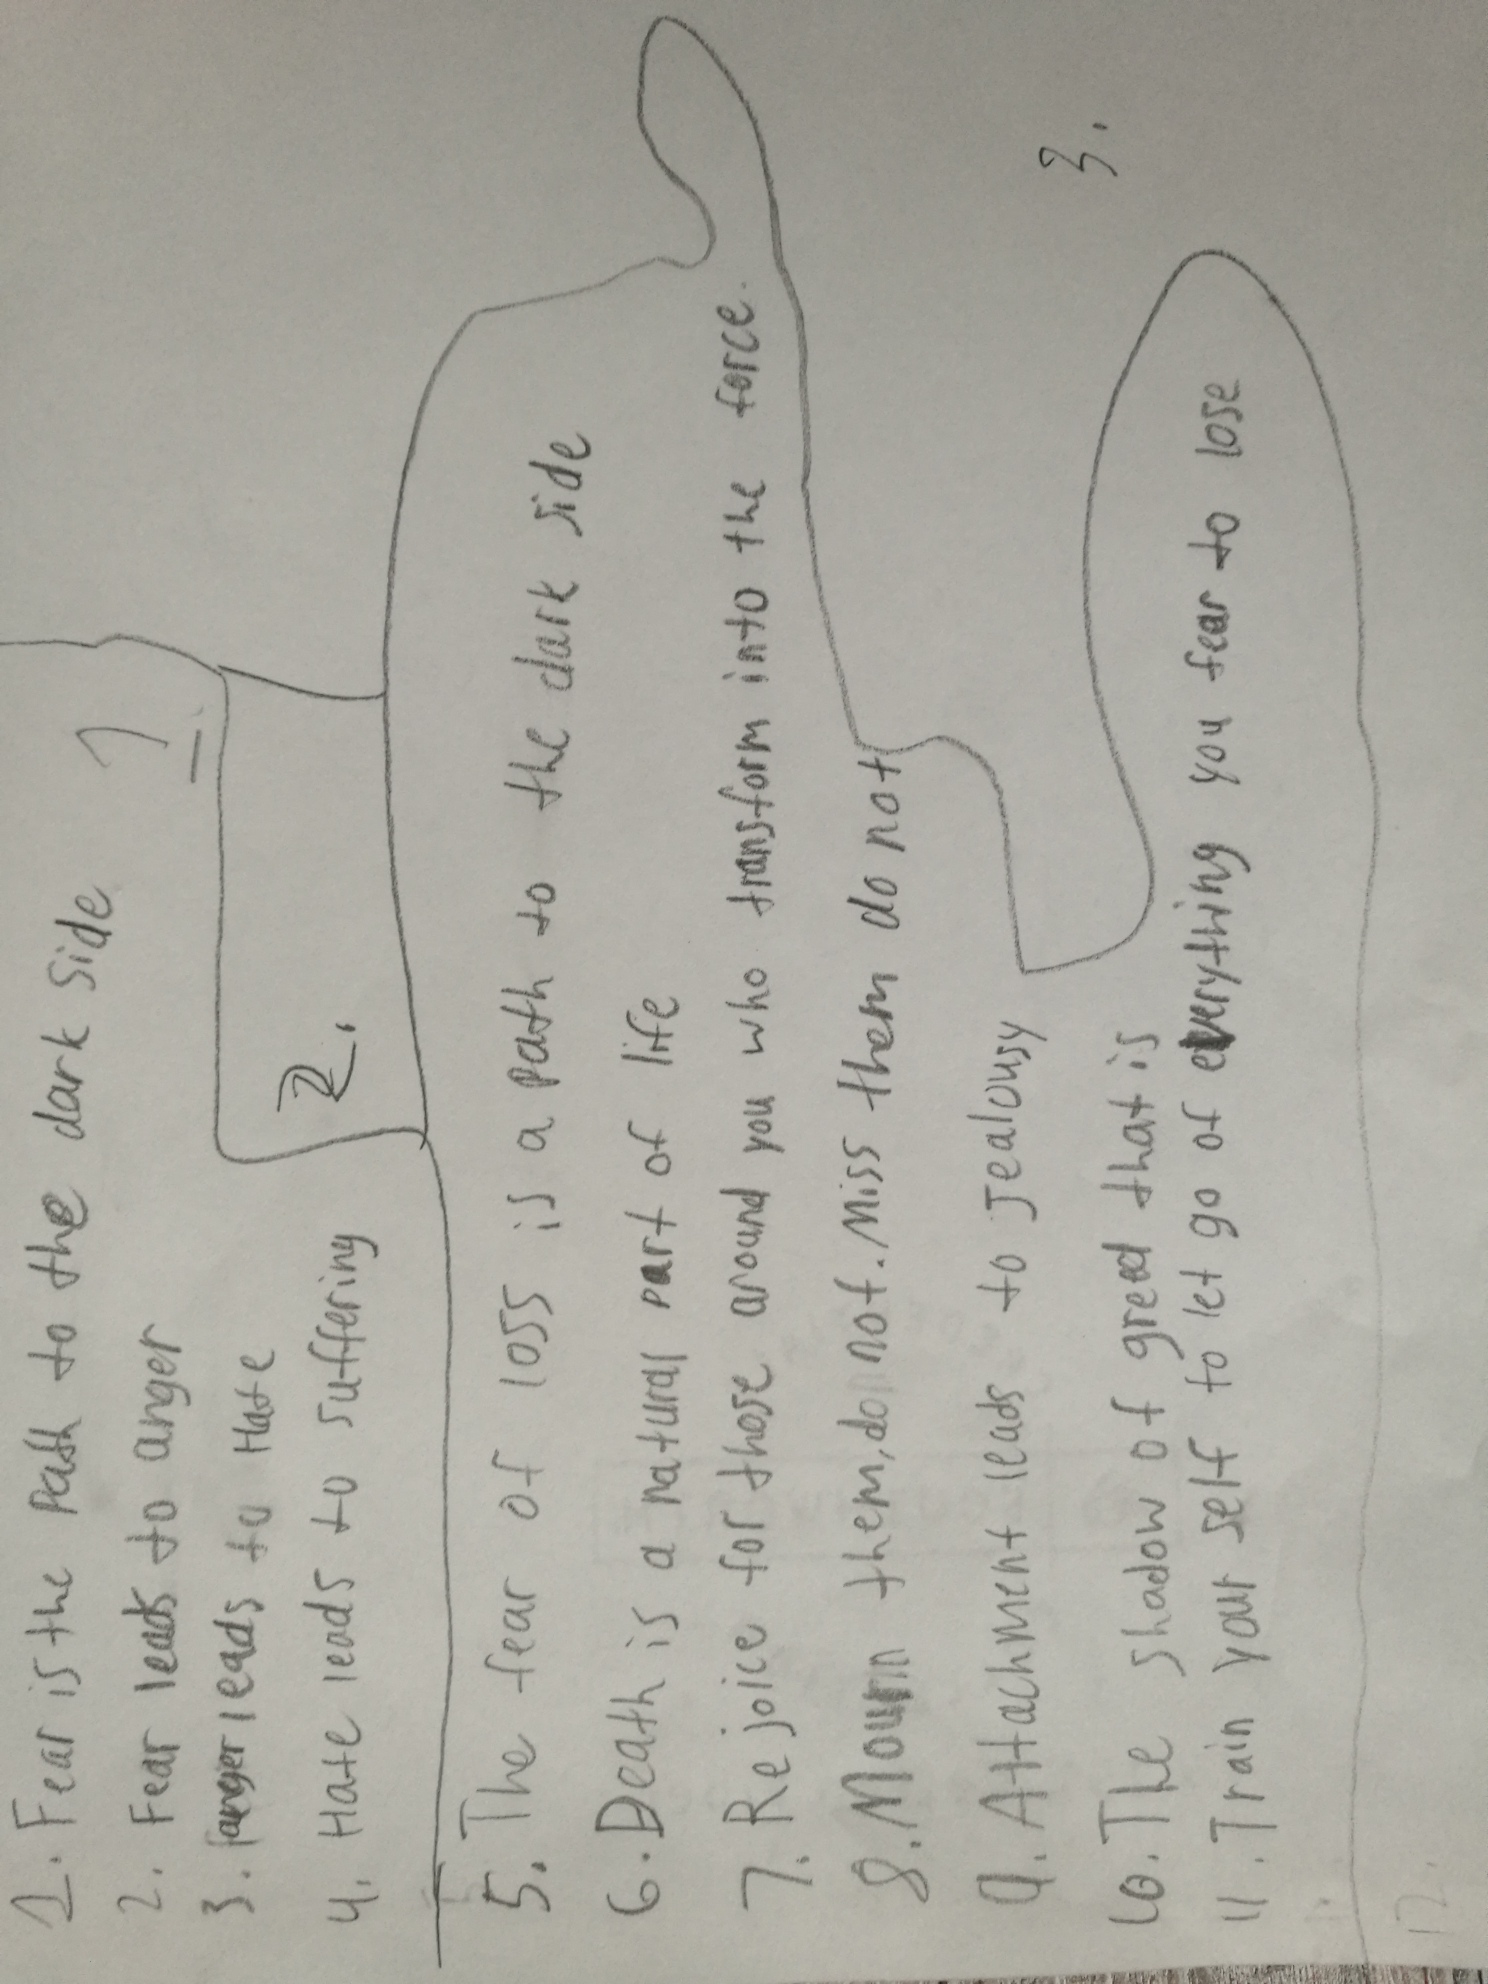 1. Fear is the path to the dark side
2. Fear leads to anger
3. anger leads to Hate
4. Hate leads to suffering
1.
2.
5. The fear of loss is a path to the dark side
6. Death is a natural part of life
7. Rejoice for those around you who transform into the force.
8. Mourn them, do not. Miss them do not
9. Attachment leads to Jealousy
3.
10. The shadow of greed that is
11. Train your self to let go of everything you fear to lose
12.